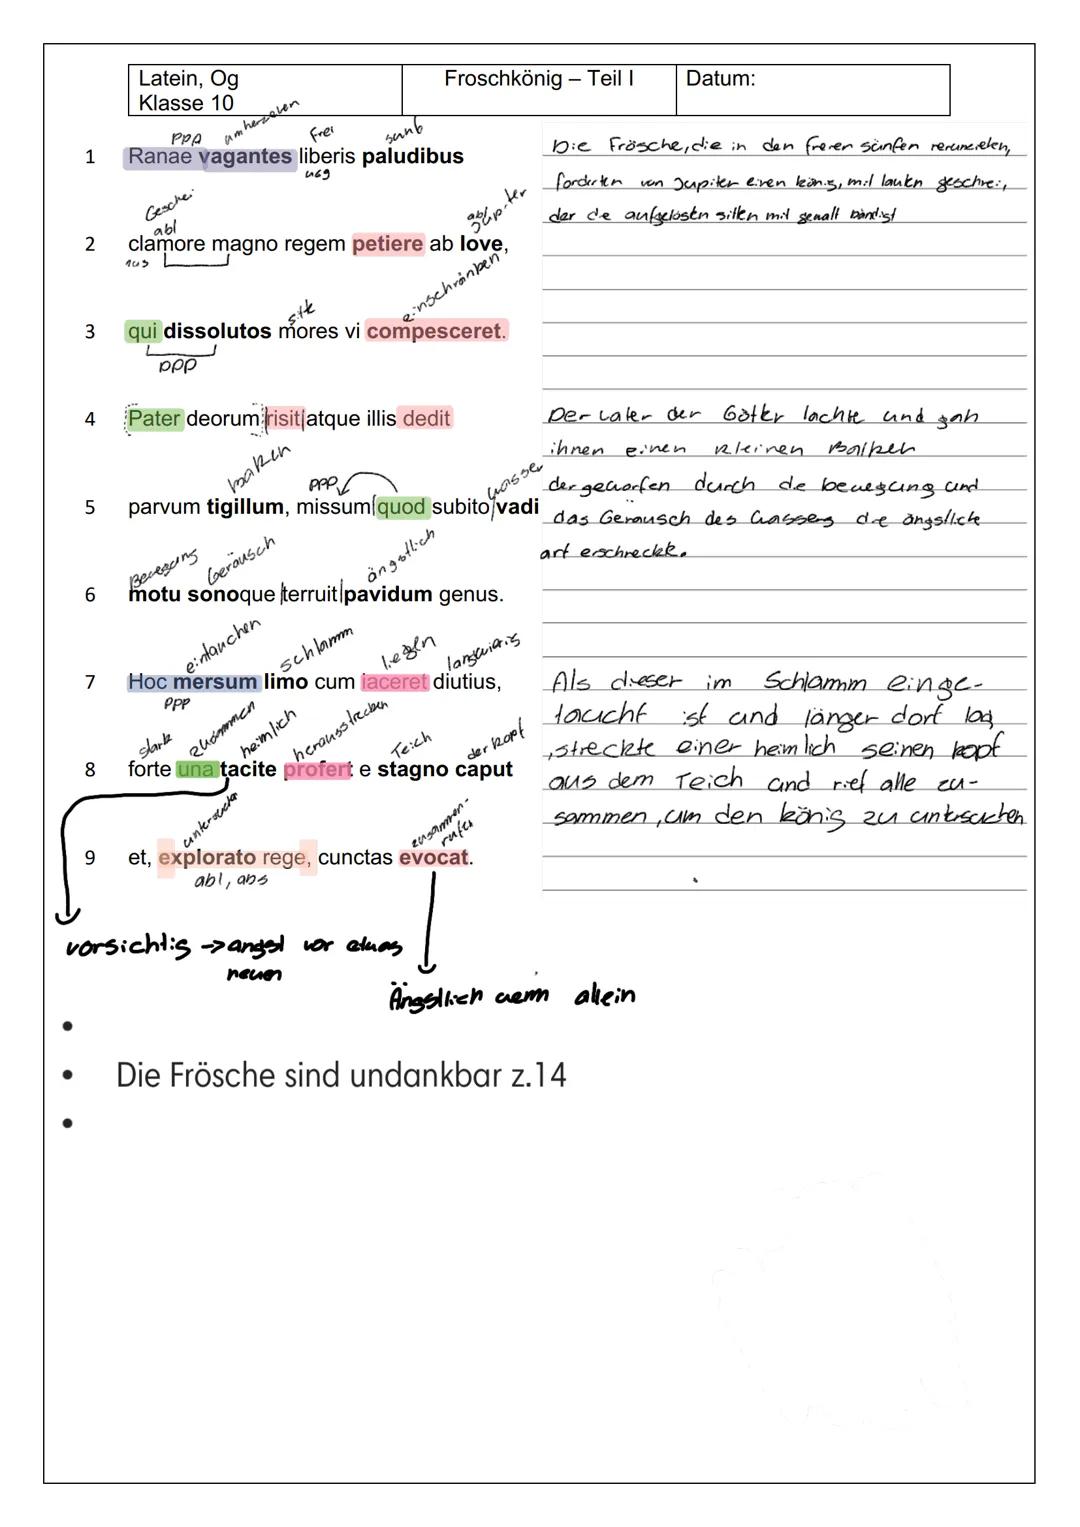 Latein, Og
Klasse 10
Froschkönig – Teil I
Datum:
PPA umherziehen Frei sumpf
1 Ranae vagantes liberis paludibus
Die Frösche, die in den freien sümfen
forderten von Jupiter einen könig, mit lauten geschrei,
der die aufgelösten sitten mit gewalt bändigt
abl abl Jupiter
2 clamore magno regem petiere ab Iove,
aus
sitte einschränken
3 qui dissolutos mores vi compesceret.
PPP
4 Pater deorum risit atque illis dedit
Der vater der Götter lachte und gab
ihnen einen kleinen Balken
balken PPP wasser
5 parvum tigillum, missum quod subito vadi
der geworfen durch die bewegung und
das Geräusch des Wassers die ängstliche
art erschreckte.
Bewegung Geräusch ängstlich
6 motu sonoque terruit pavidum genus.
eintauchen schlamm liegen langwierig
7 Hoc mersum limo cum iaceret diutius,
PPP
Als dieser im Schlamm einge-
taucht ist und länger dort lag
, streckte einer heimlich seinen kopf
aus dem Teich und rief alle zu-
sammen, um den könig zu untersuchen
stark zusammen heimlich herausstrecken Teich der Kopf
8 forte una tacite profert e stagno caput
untersuchen zusammen-
rufen
9 et, explorato rege, cunctas evocat.
abl, abs
vorsichtig -> angst vor etwas
neuen
Ängstlich wenn allein
•
• Die Frösche sind undankbar z.14
•